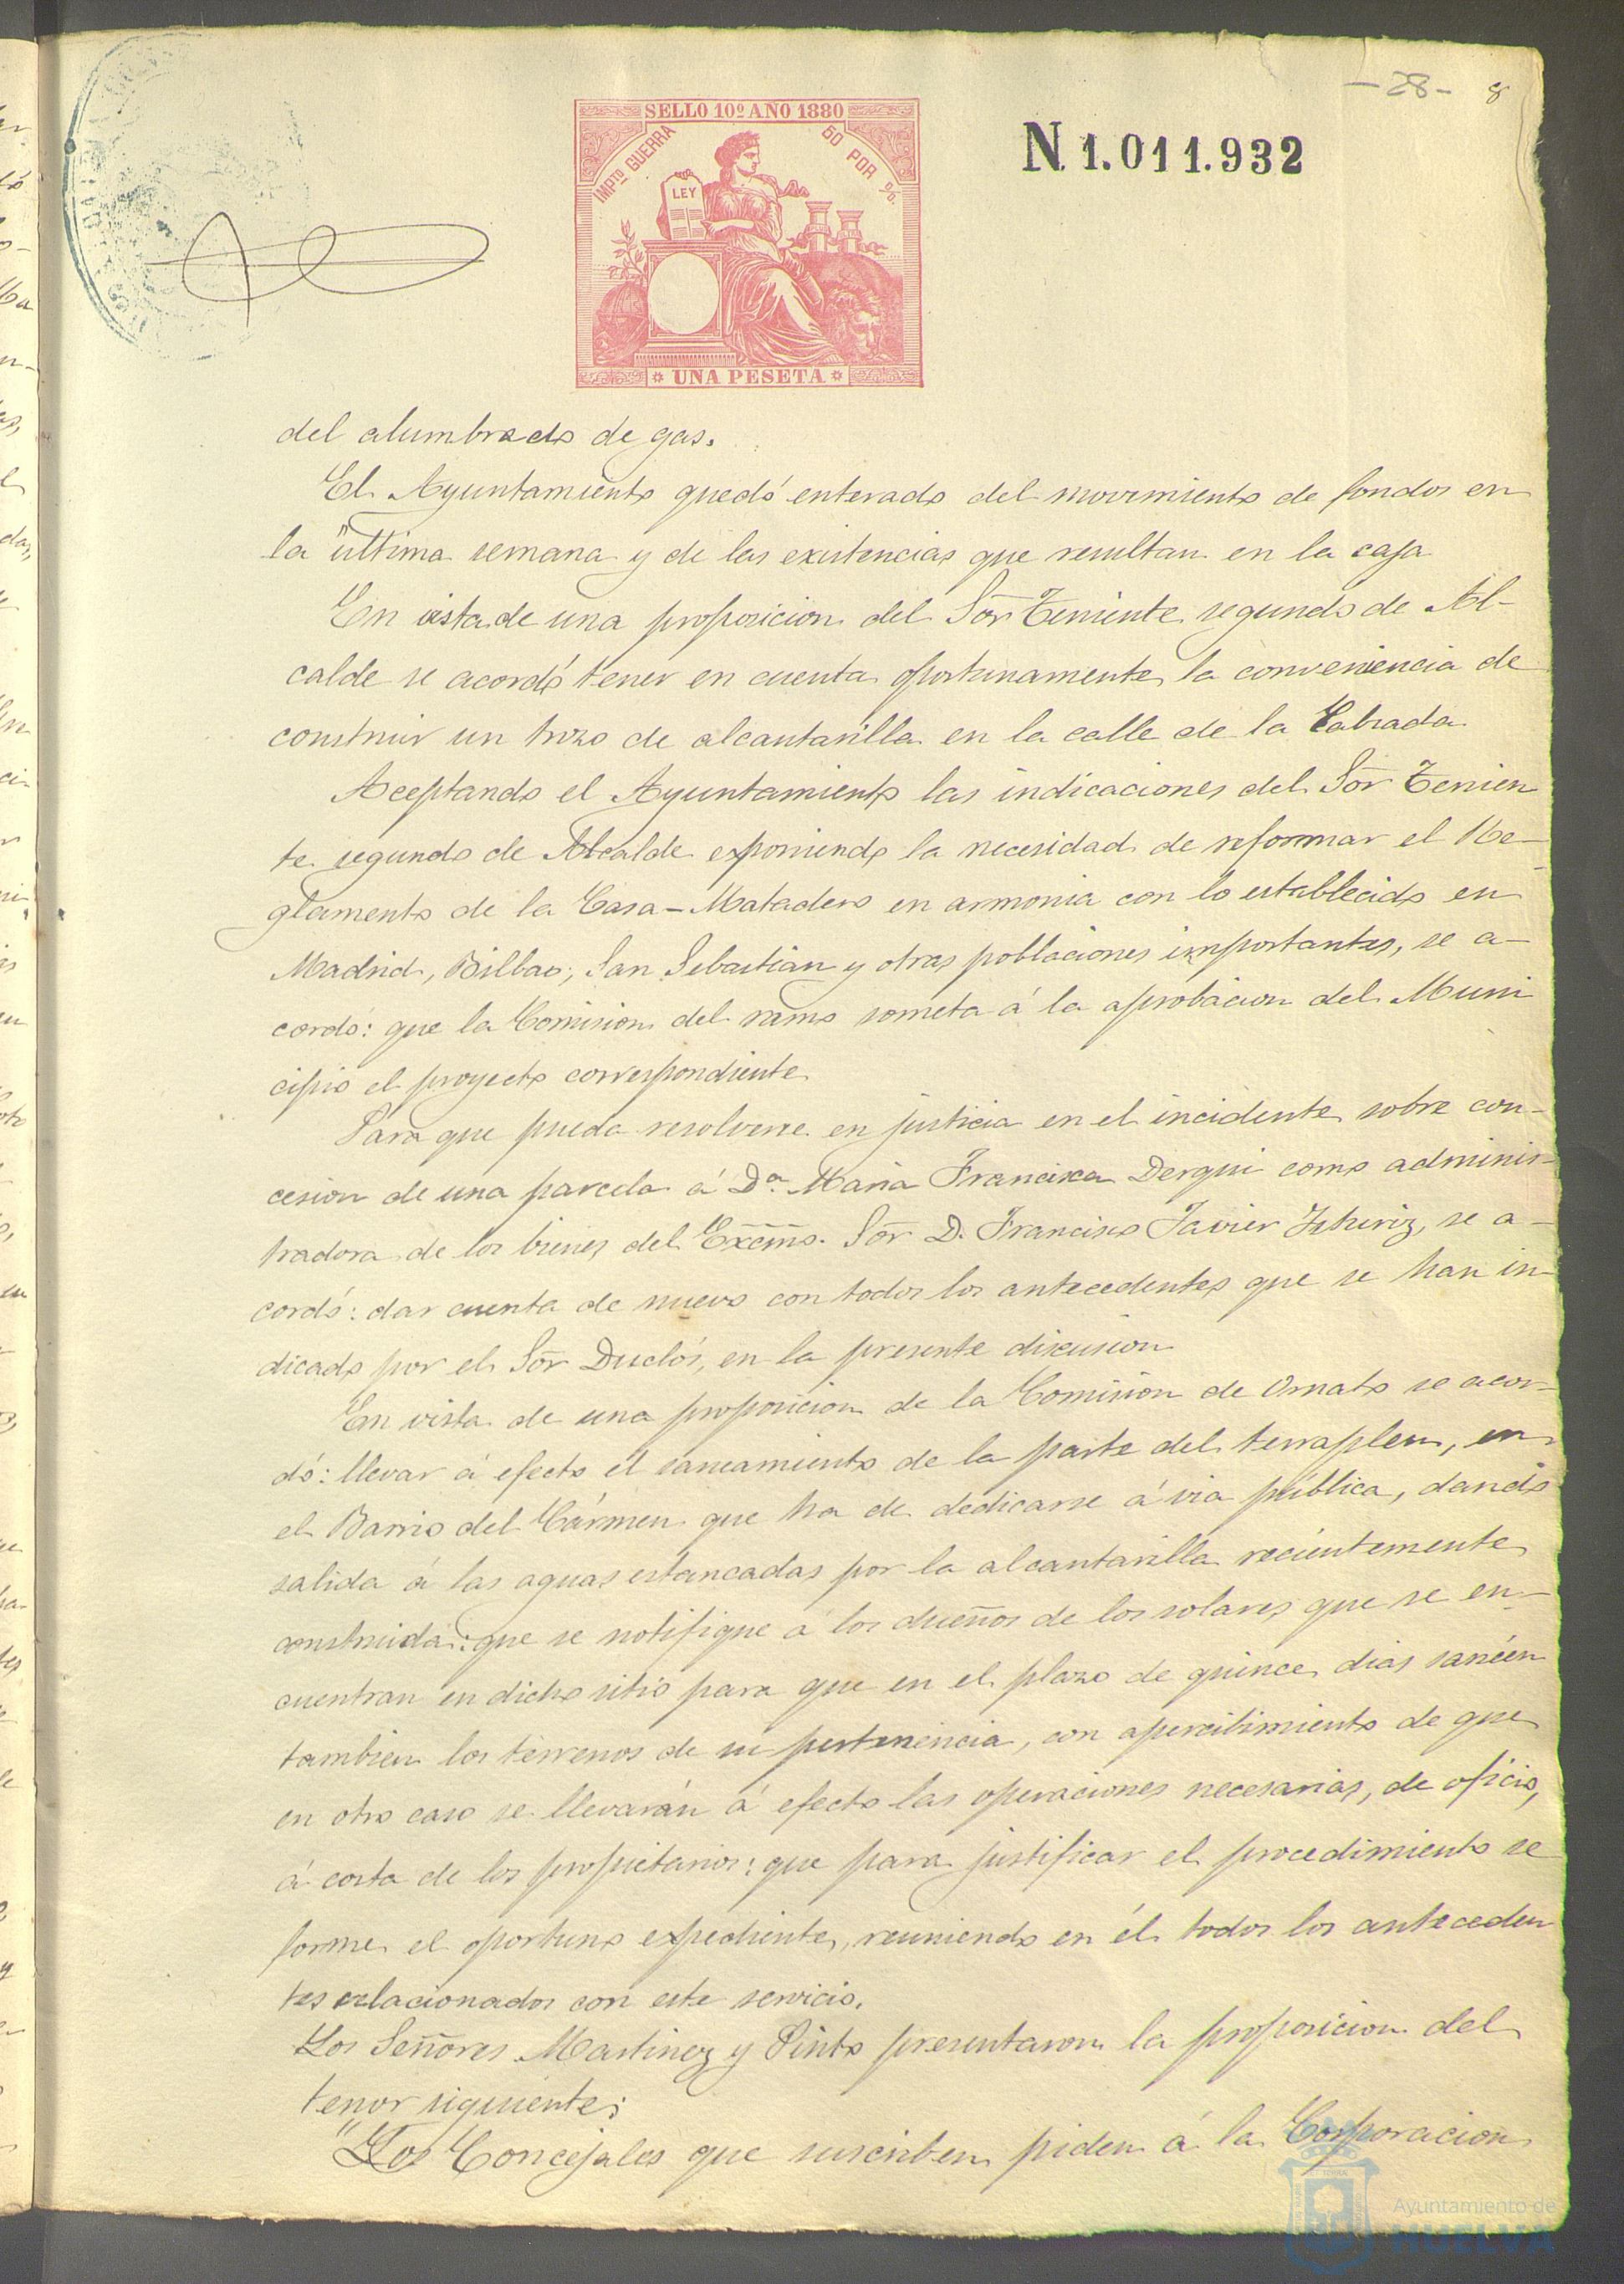 -28- 8
SELLO 10º AÑO 1880
IMPTO GUERRA 50 POR %.
LEY
UNA PESETA
N. 1.011.932
del alumbrado de gas.
El Ayuntamiento quedó enterado del movimiento de fondos en
la última semana y de las existencias que resultan en la caja
En vista de una proposicion del Sor Teniente segundo de Al-
calde se acordó tener en cuenta oportunamente la conveniencia de
construir un trozo de alcantarilla en la calle de la Calzada
Aceptando el Ayuntamiento las indicaciones del Sor Tenien
te segundo de Alcalde exponiendo la necesidad de reformar el Re-
glamento de la Casa-Matadero en armonia con lo establecido en
Madrid, Bilbao, San Sebastian y otras poblaciones importantes, se a-
cordó: que la Comision del ramo someta á la aprobacion del Muni
cipio el proyecto correspondiente
Para que pueda resolverse en justicia en el incidente sobre con-
cesion de una parcela á Dª Maria Francisca Derqui como adminis-
tradora de los bienes del Excmo. Sor D. Francisco Javier Isturiz, se a-
cordó: dar cuenta de nuevo con todos los antecedentes que se han in-
dicado por el Sor Duclós, en la presente discusion
En vista de una proposicion de la Comision de Ornato se acor-
dó: llevar á efecto el saneamiento de la parte del terraplen, en
el Barrio del Cármen que ha de dedicarse á via pública, dando
salida á las aguas estancadas por la alcantarilla recientemente
construida: que se notifique á los dueños de los solares que se en-
cuentran en dicho sitio para que en el plazo de quince dias saneen
tambien los terrenos de su pertenencia, con apercibimiento de que
en otro caso se llevarán á efecto las operaciones necesarias, de oficio,
á costa de los propietarios: que para justificar el procedimiento se
forme el oportuno expediente, reuniendo en él todos los anteceden
tes relacionados con este servicio.
Los Señores Martinez y Pinto presentaron la proposicion del
tenor siguiente:
"Los Concejales que suscriben piden á la Corporacion
Ayuntamiento de
HUELVA